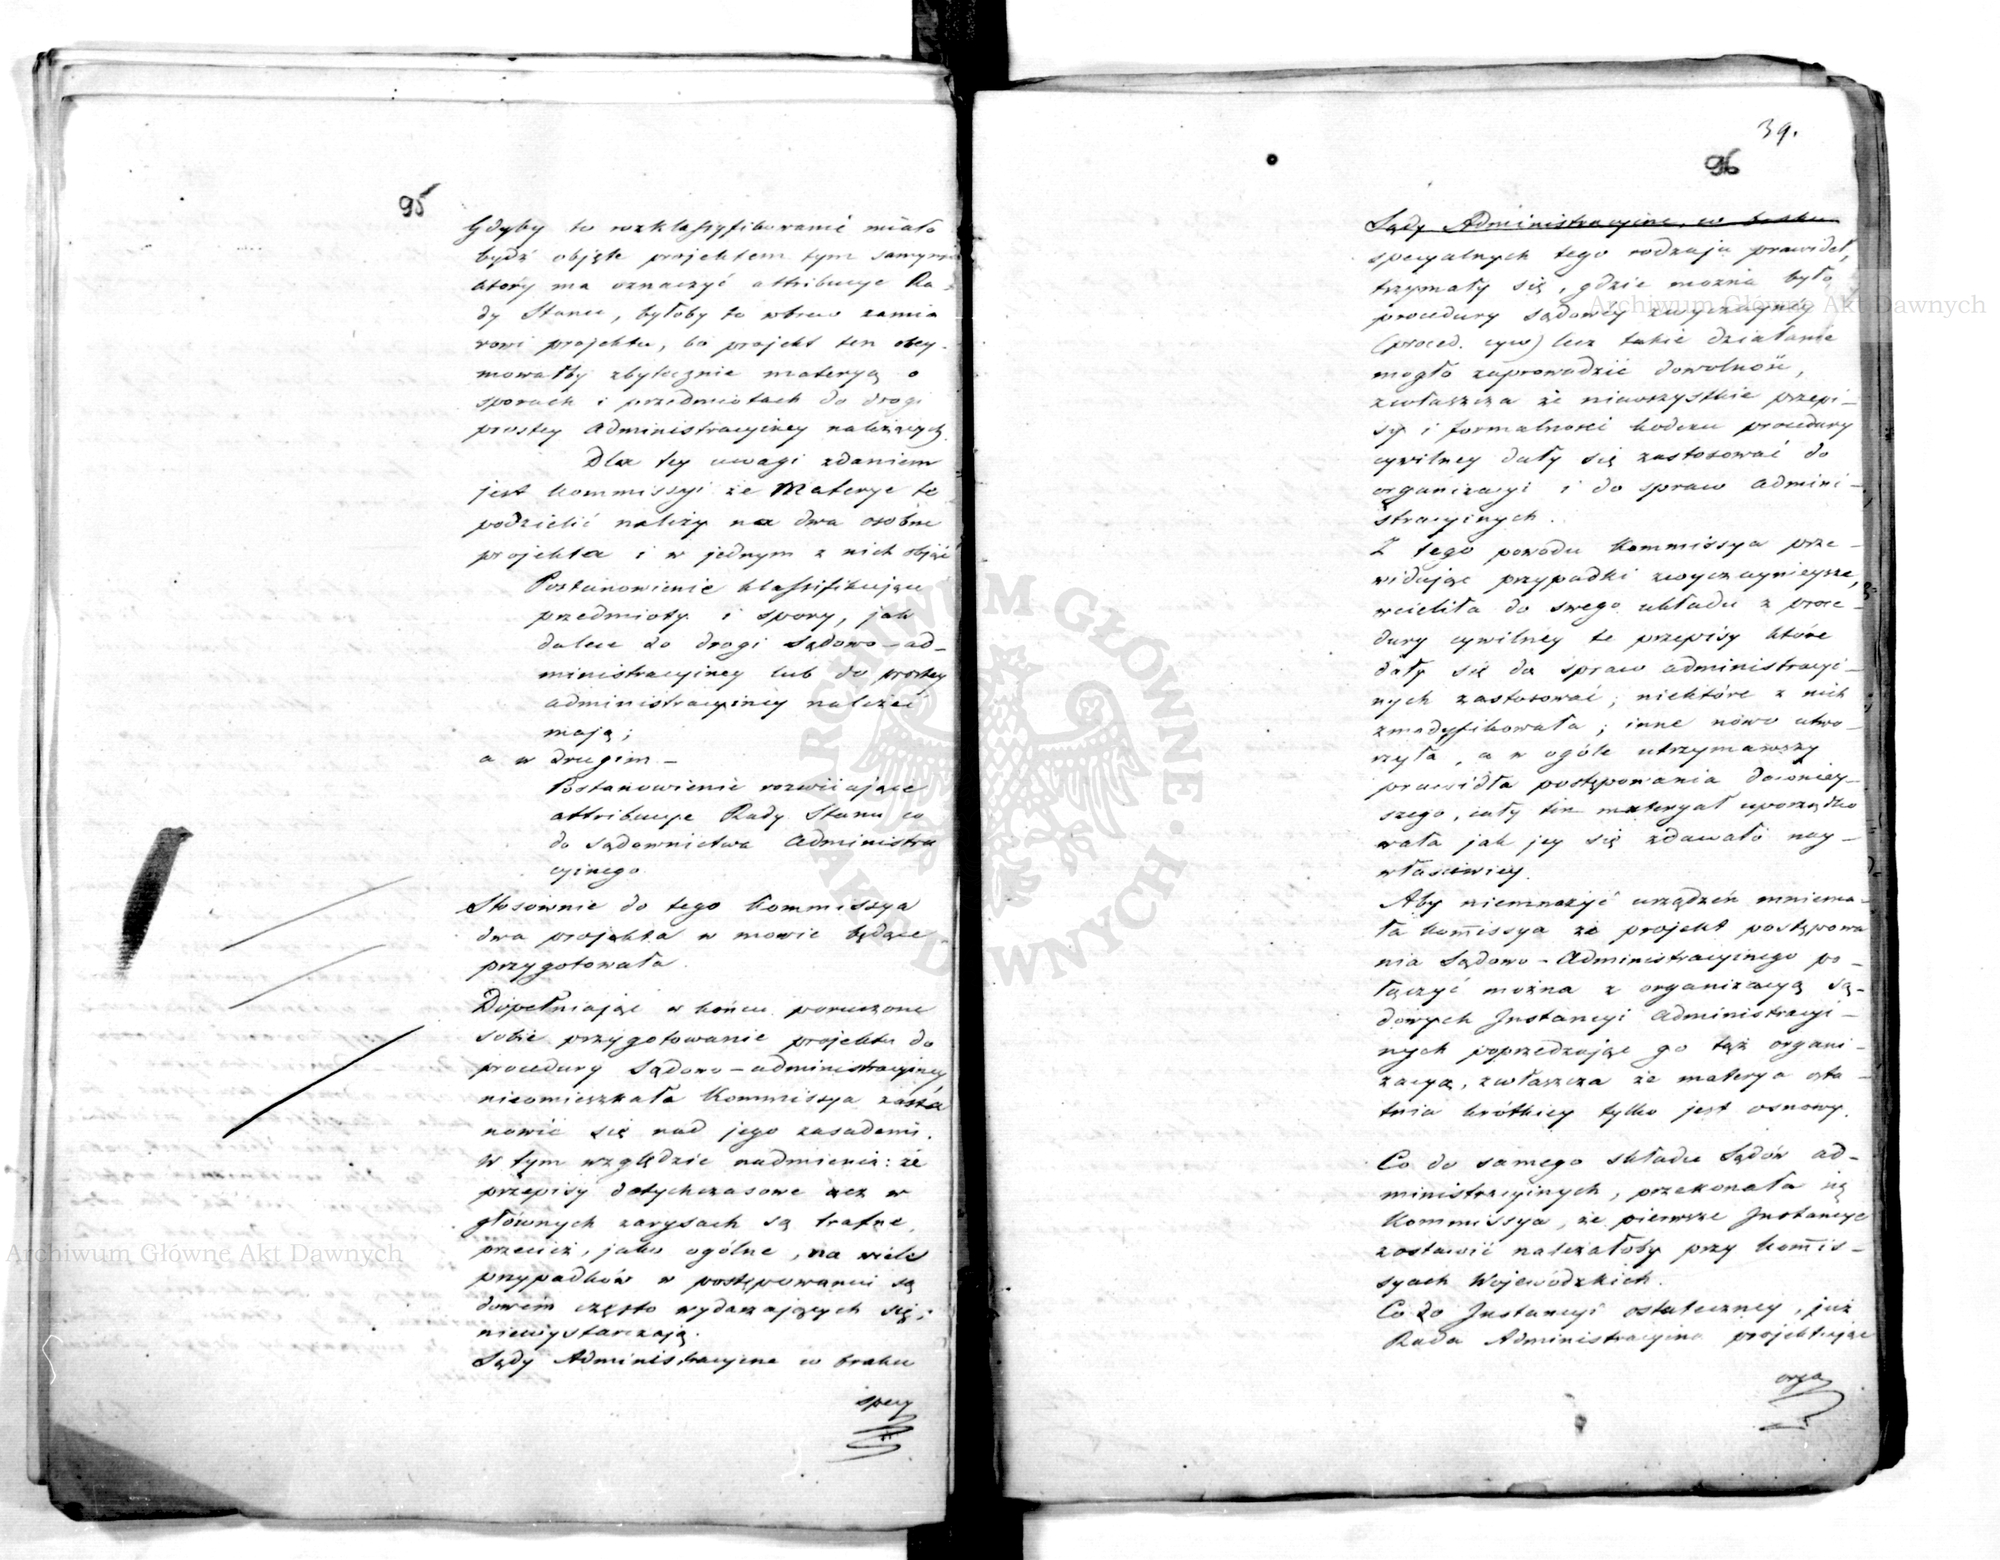 95
Gdyby to rozklassyfikowanie miało
bydź objęte projektem tym samym
który ma oznaczyć attribucye Ra-
dy Stanu, byłoby to wbrew zamia
rowi projektu, bo projekt ten obey-
mowałby zbytecznie materyą o
sporach i przedmiotach do drogi
prostey administracyiney należących.
Dla tey uwagi zdaniem
jest Kommissyi że Materye te
podzielić należy na dwa osóbne
projekta i w jednym z nich objąć
Postanowienie klassifikujące
przedmioty i spory, jak
dalece do drogi Sądowo-ad-
ministracyiney lub do prostey
administracyiney należeć
mają;
a w drugim -
Postanowienie rozwiiające
attribucye Rady Stanu co
do sądownictwa Administra
cyinego.
Stosownie do tego Kommissya
dwa projekta w mowie będące
przygotowała.
Dopełniając w końcu poruczone
sobie przygotowanie projektu do
procedury Sądowo-administracyiney
nieomieszkała Kommissya zasta
nowić się nad jego zasadami.
W tym względzie nadmienia: że
przepisy dotychczasowe acz w
głównych zarysach są trafne,
przecież, jako ogólne, na wiele
przypadków w postępowaniu są
dowem często wydarzających się,
niewystarczają.
Sądy Administracyine w braku
specy
39.
96
Sądy Administracyine, w braku
specyalnych tego rodzaju prawideł,
trzymały się, gdzie można było,
procedury sądowey zwyczayney
(proced. cyw) lecz takie działanie
mogło zaprowadzić dowolność,
zwłaszcza że niewszystkie przepi-
sy i formalności kodexu procedury
cywilney dały się zastosować do
organizacyi i do spraw admini-
stracyinych.
Z tego powodu Kommissya prze-
widując przypadki zwyczaynieysze,
wcieliła do swego układu z proce-
dury cywilney te przepisy które
dały się do spraw administracyi-
nych zastosować; niektóre z nich
zmodyfikowała; inne nowo utwo-
rzyła, a w ogóle utrzymawszy
prawidła postępowania dawniey-
szego, cały ten materyał uporządko
wała jak jey się zdawało nay-
właściwiey.
Aby niemnożyć urządzeń mniema-
ła Komissya że projekt postępowa
nia Sądowo-Administracyinego po-
łączyć można z organizacyą są-
dowych Instancyi administracyi-
nych poprzedzając go tąż organi-
zacyą, zwłaszcza że materya osta-
tnia krótkiey tylko jest osnowy.
Co do samego składu Sądów ad-
ministracyinych, przekonała się
Kommissya, że pierwsze Instancye
zostawić należałoby przy Komis-
syach Wojewódzkich.
Co do Instancyi ostateczney, już
Rada Administracyina projektując
orga
Archiwum Główne Akt Dawnych
Archiwum Główne Akt Dawnych
ARCHIWUM GŁÓWNE AKT DAWNYCH